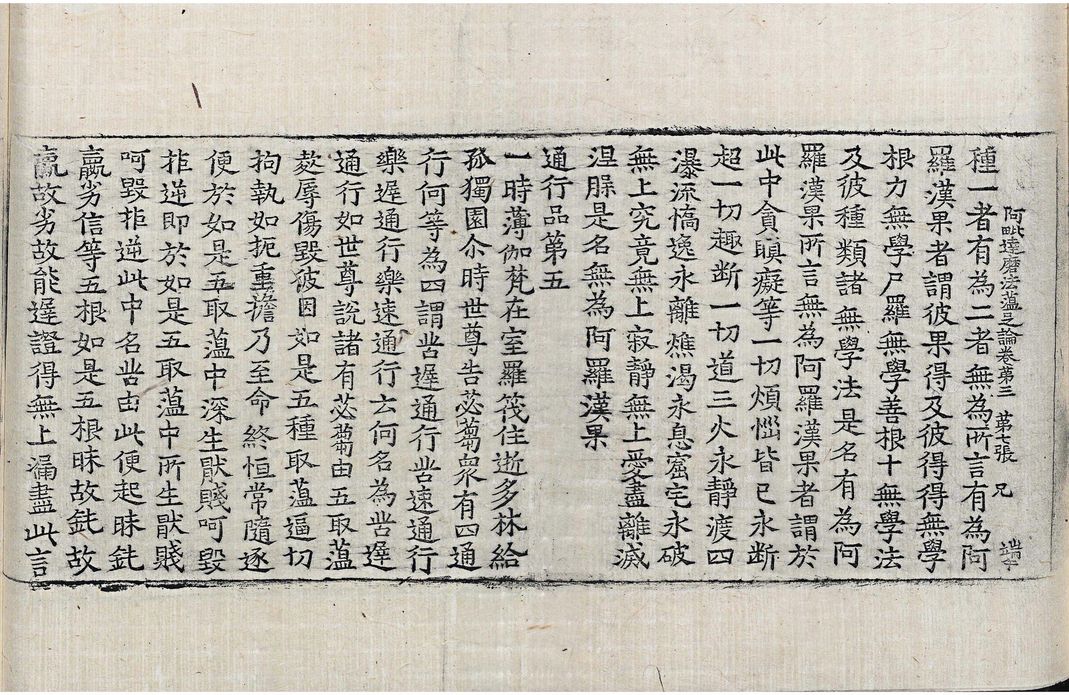 阿毗達磨法蘊足論卷第三　第七張　兄
種一者有為二者無為所言有為阿
羅漢果者謂彼果得及彼得得無學
根力無學尸羅無學善根十無學法
及彼種類諸無學法是名有為阿
羅漢果所言無為阿羅漢果者謂於
此中貪瞋癡等一切煩惱皆已永斷
超一切趣斷一切道三火永靜渡四
瀑流憍逸永離燋渴永息窟宅永破
無上究竟無上寂靜無上愛盡離滅
涅脲是名無為阿羅漢果
通行品第五
一時薄伽梵在室羅筏住逝多林給
孤獨園尒時世尊告苾蒭衆有四通
行何等為四謂苦遲通行苦速通行
樂遲通行樂速通行云何名為苦遲
通行如世尊說諸有苾蒭由五取蘊
逼辱傷毀彼因如是五種取蘊逼切
拘執如扼重擔乃至命終恒常隨逐
便於如是五取蘊中深生猒賤呵毀
拒逆即於如是五取蘊中所生猒賤
呵毀拒逆此中名苦由此便起昧鈍
羸劣信等五根如是五根昧故鈍故
羸故劣故能遲證得無上漏盡此言